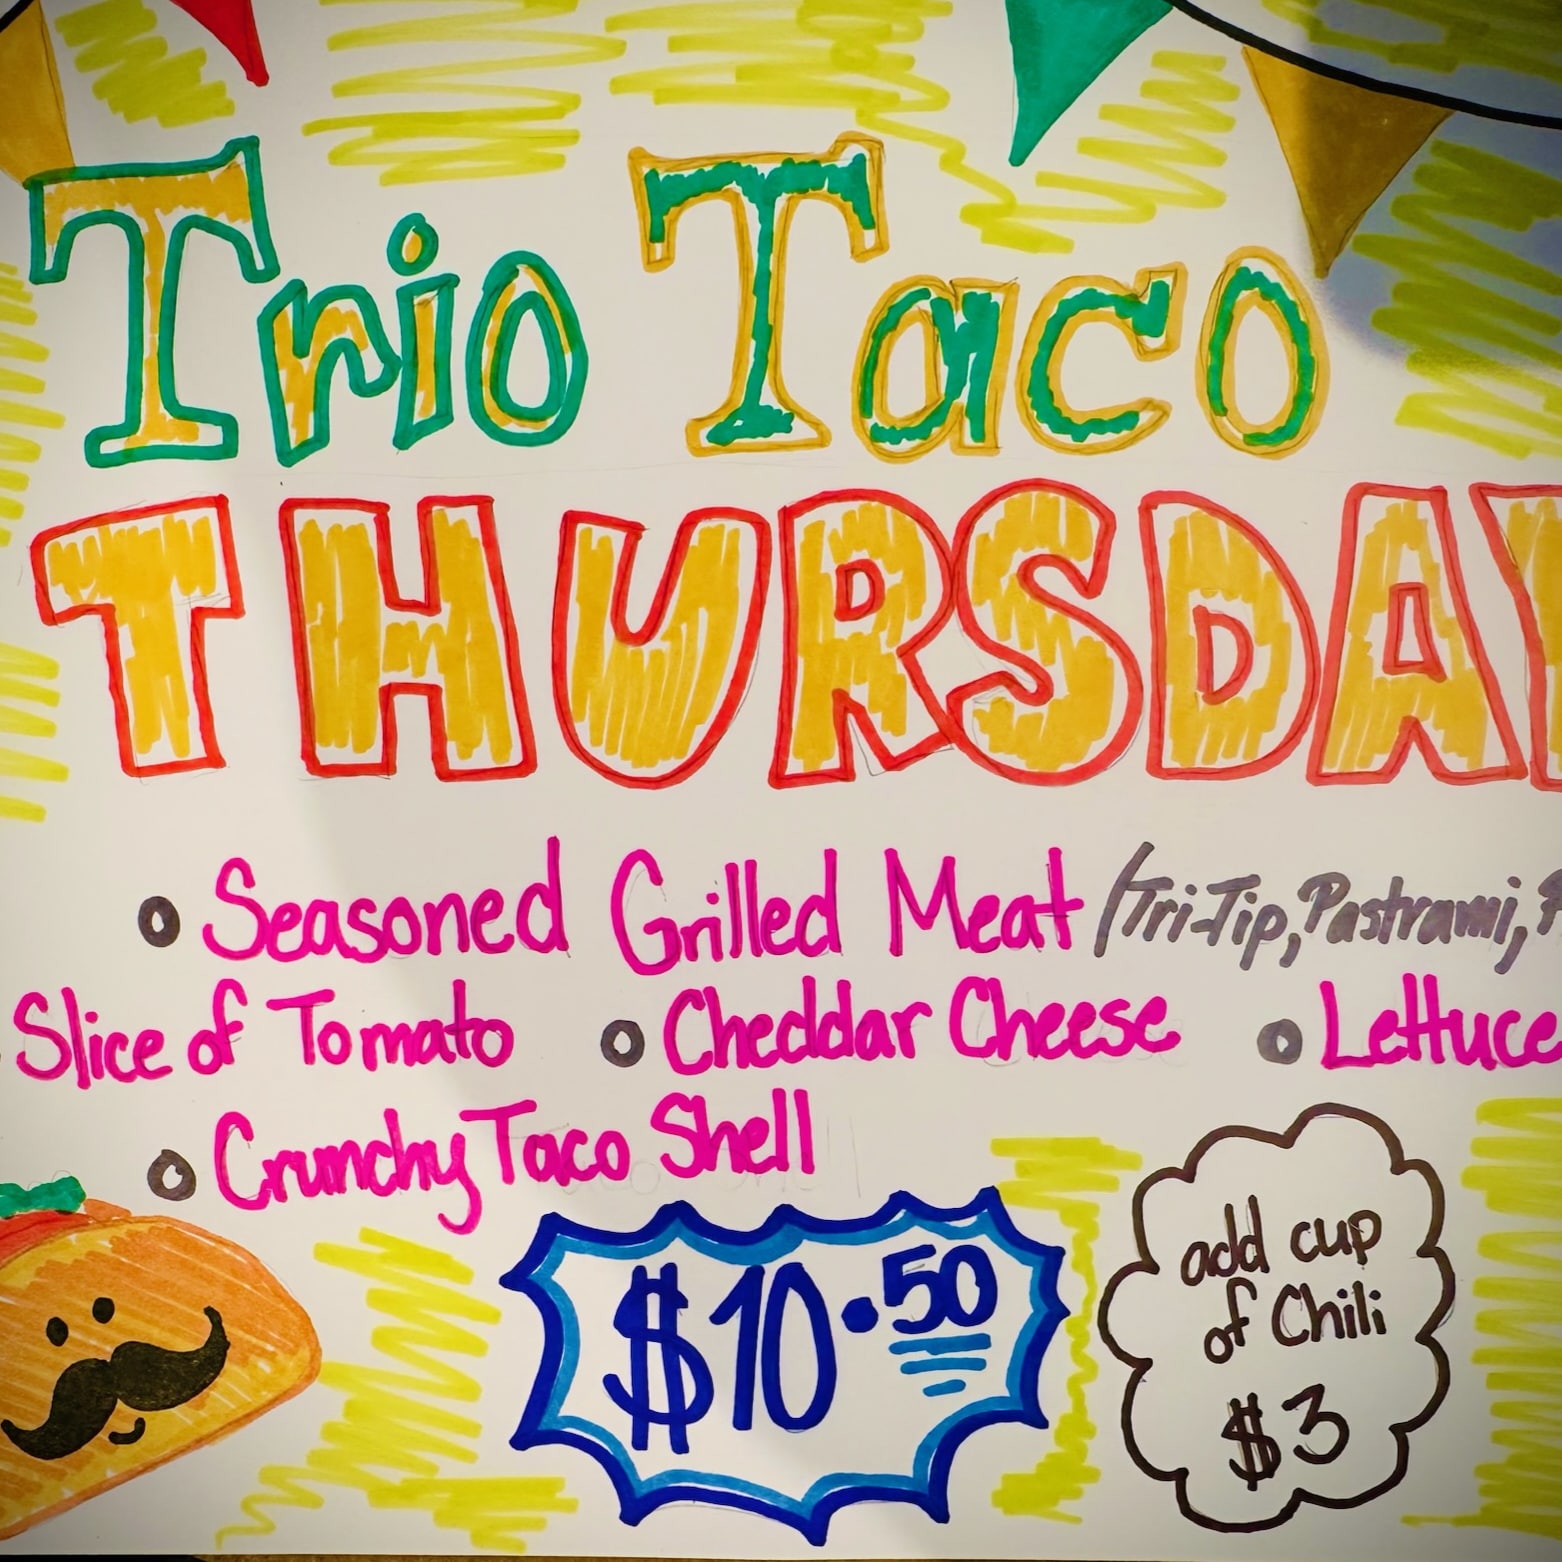 Trio Taco
THURSDAY
Seasoned Grilled Meat (Tri-Tip, Pastrami,
Slice of Tomato Cheddar Cheese Lettuce
Crunchy Taco Shell
$10.50
add cup
of Chili
$3